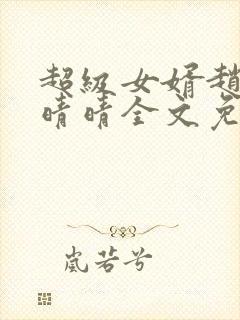 超级女婿赵
晴晴全文免
嵐若兮